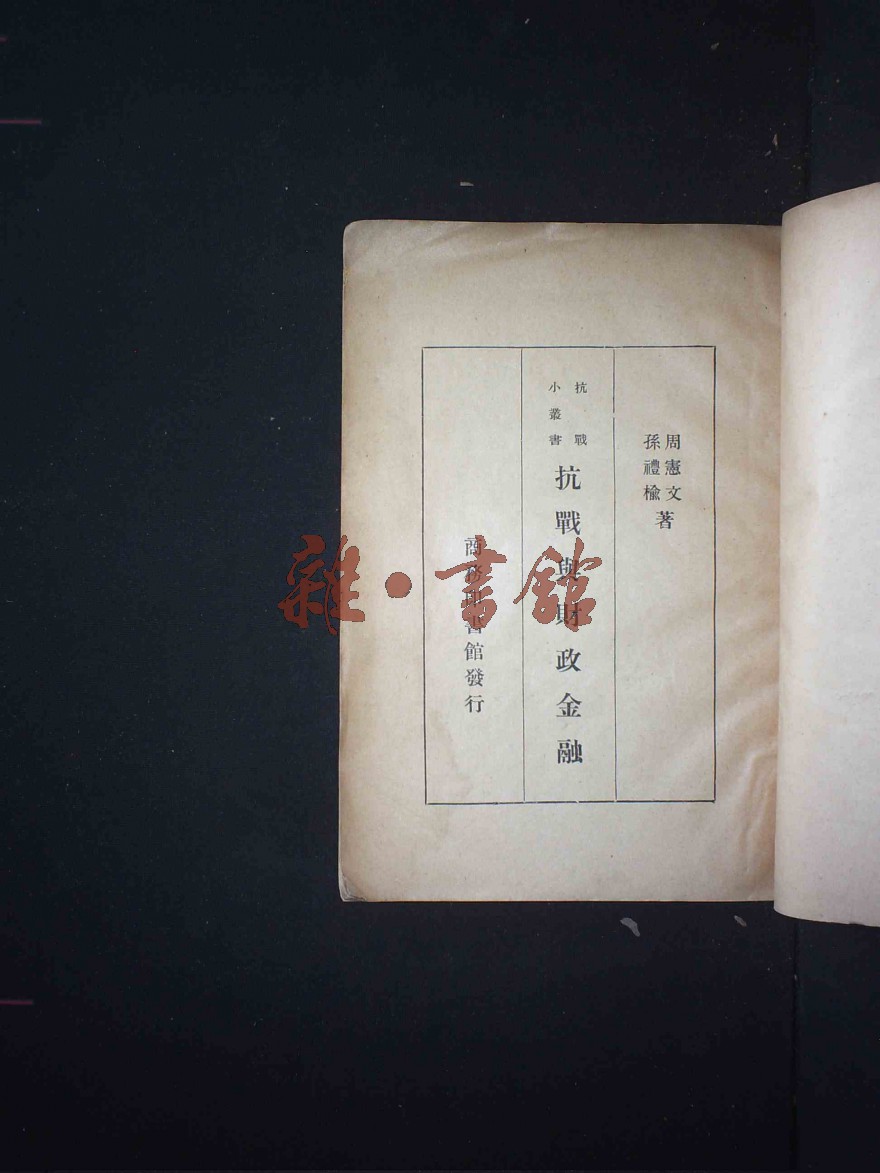 周憲文
孫禮榆
著
抗戰
小叢書
抗戰與財政金融
商務印書館發行
雜·書館